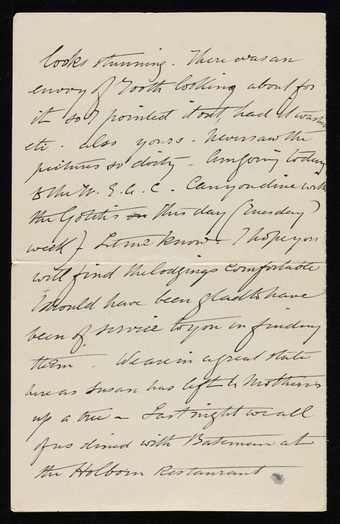 looks stunning. There was an
envoy of Tooth looking about for
it so I pointed it out, had it washed
etc. Also yours. Never saw the
pictures so dirty. Am going today
to the N. E. A. C. Can you dine with
the Gotch's on this day (Tuesday)
week) Let me know - I hope you
will find the lodgings comfortable
I should have been glad to have
been of service to you in finding
them. We are in a great state
here as Susan has left & Mother is
up a tree - Last night we all
of us dined with Bateman at
the Holborn Restaurant